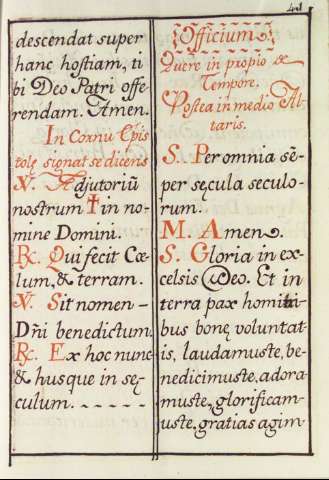 descendat super
hanc hostiam, ti
bi Deo Patri offe
rendam. Amen.
In Cornu Epis
tolę signat se dicens
℣. Adjutoriũ
nostrum ✝ in no-
mine Domini.
℟. Qui fecit Cœ
lum, & terram.
℣. Sit nomen –
Dñi benedictum.
℟. Ex hoc nunc
& husque in sę-
culum. - - - - -
Officium
Quęre in propio de
Tempore,
Postea in medio Al-
taris.
S. Per omnia sẽ-
per sęcula seculo-
rum.
M. Amen.
S. Gloria in ex-
celsis Deo. Et in
terra pax homini-
bus bonę voluntat-
is, laudamuste, be-
nedicimuste, adora-
muste, glorificam-
uste, gratias agim-